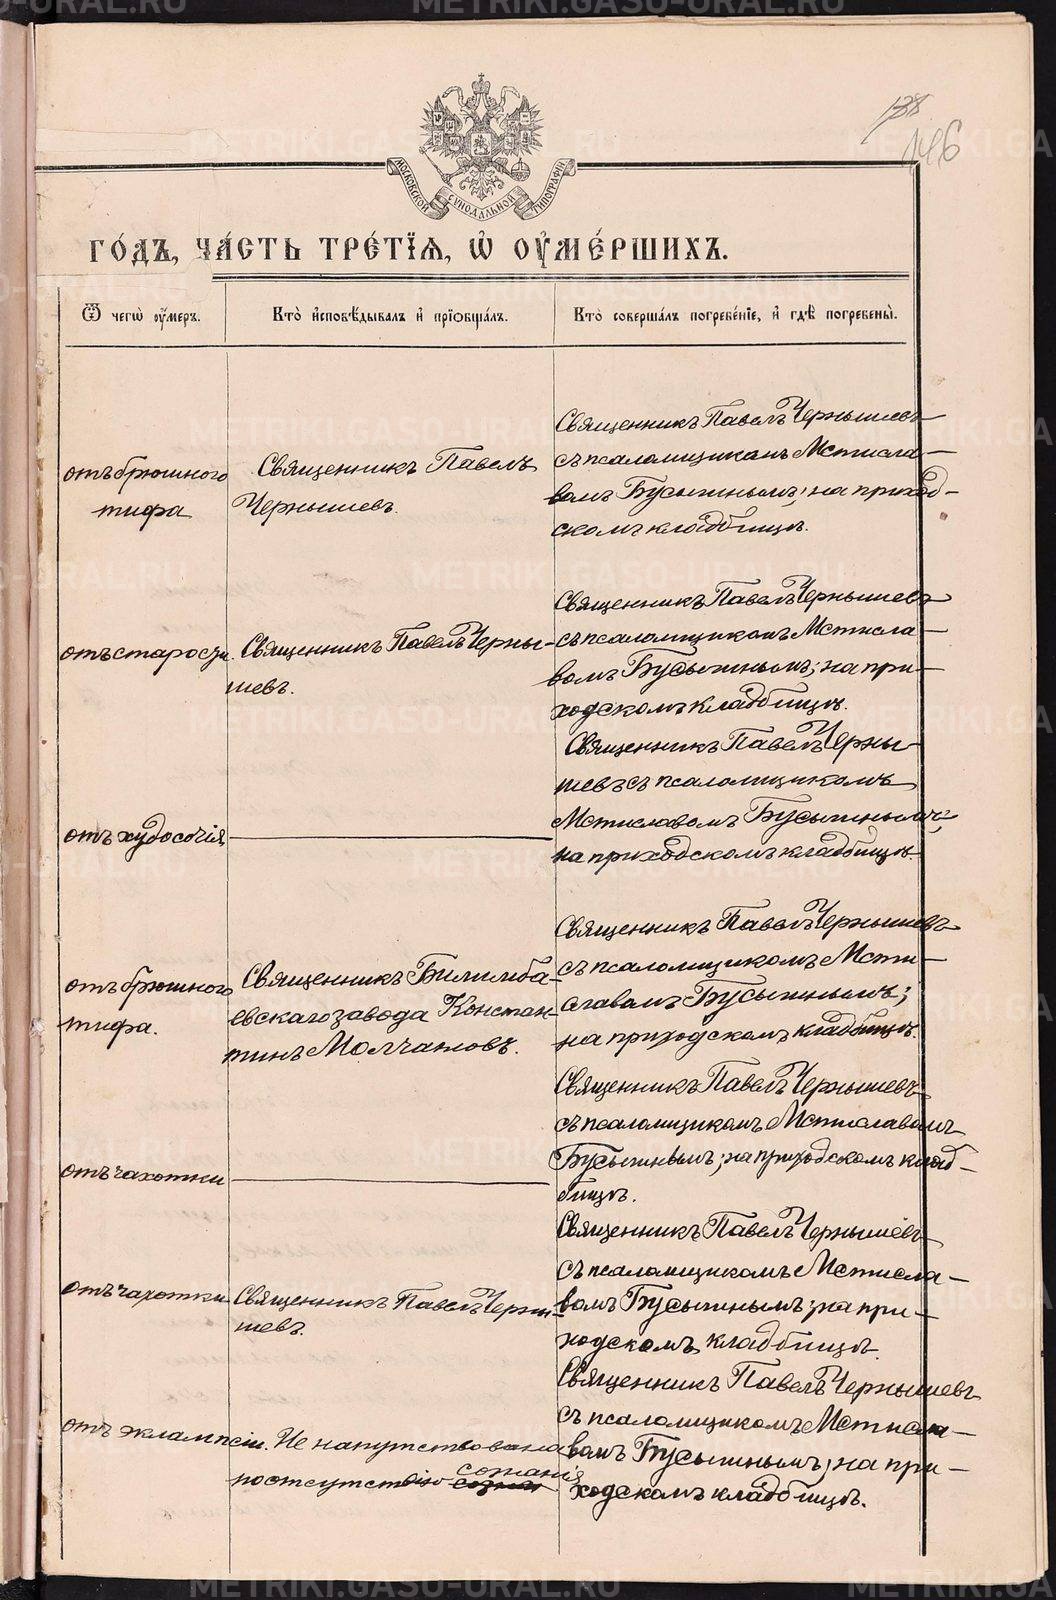 138
146
МОСКОВСКОЙ СѴНОДАЛЬНОЙ ТИПОГРАФІИ
ГО́ДЪ, ЧА́СТЬ ТРЕ́ТІѦ, Ѡ҆ ОУ҆МЕ́РШИХЪ.
Ѿ чегѡ̀ оу҆́меръ.
Кто̀ и҆сповѣ́дывалъ и҆ прїѻбща́лъ.
Кто̀ соверша́лъ погребе́нїе, и҆ гдѣ̀ погребены̀.
отъ брюшного
тифа
Священникъ Павелъ
Чернышевъ.
Священникъ Павелъ Чернышевъ
съ псаломщикомъ Мстисла-
вомъ Бусыгинымъ; на приход-
скомъ кладбищѣ.
отъ старости.
Священникъ Павелъ Черны-
шевъ.
Священникъ Павелъ Чернышевъ
съ псаломщикомъ Мстисла-
вомъ Бусыгинымъ; на при-
ходскомъ кладбищѣ.
отъ худосочія
Священникъ Павелъ Черны-
шевъ съ псаломщикомъ
Мстиславомъ Бусыгинымъ;
на приходскомъ кладбищѣ.
отъ брюшного
тифа.
Священникъ Билимба-
евскаго завода Констан-
тинъ Молчановъ.
Священникъ Павелъ Чернышевъ
съ псаломщикомъ Мсти-
славомъ Бусыгинымъ;
на приходскомъ кладбищѣ.
отъ чахотки
Священникъ Павелъ Чернышевъ
съ псаломщикомъ Мстиславомъ
Бусыгинымъ; на приходскомъ клад-
бищѣ.
отъ чахотки
Священникъ Павелъ Черны-
шевъ.
Священникъ Павелъ Чернышевъ
съ псаломщикомъ Мстисла-
вомъ Бусыгинымъ; на при-
ходскомъ кладбищѣ.
отъ эклампсіи.
Не напутствована
по отсутствію сознанія
Священникъ Павелъ Чернышевъ
съ псаломщикомъ Мстисла-
вомъ Бусыгинымъ; на при-
ходскомъ кладбищѣ.
METRIKI.GASO-URAL.RU